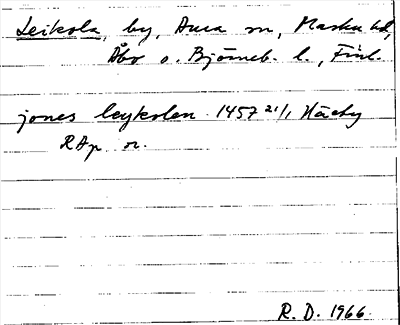 Leikola, by, Aura sn, Masku hd,
Åbo o. Björneb. l., Finl.
jones leykolen 1457 21/1 Häeby
RAp or.
R. D. 1966.